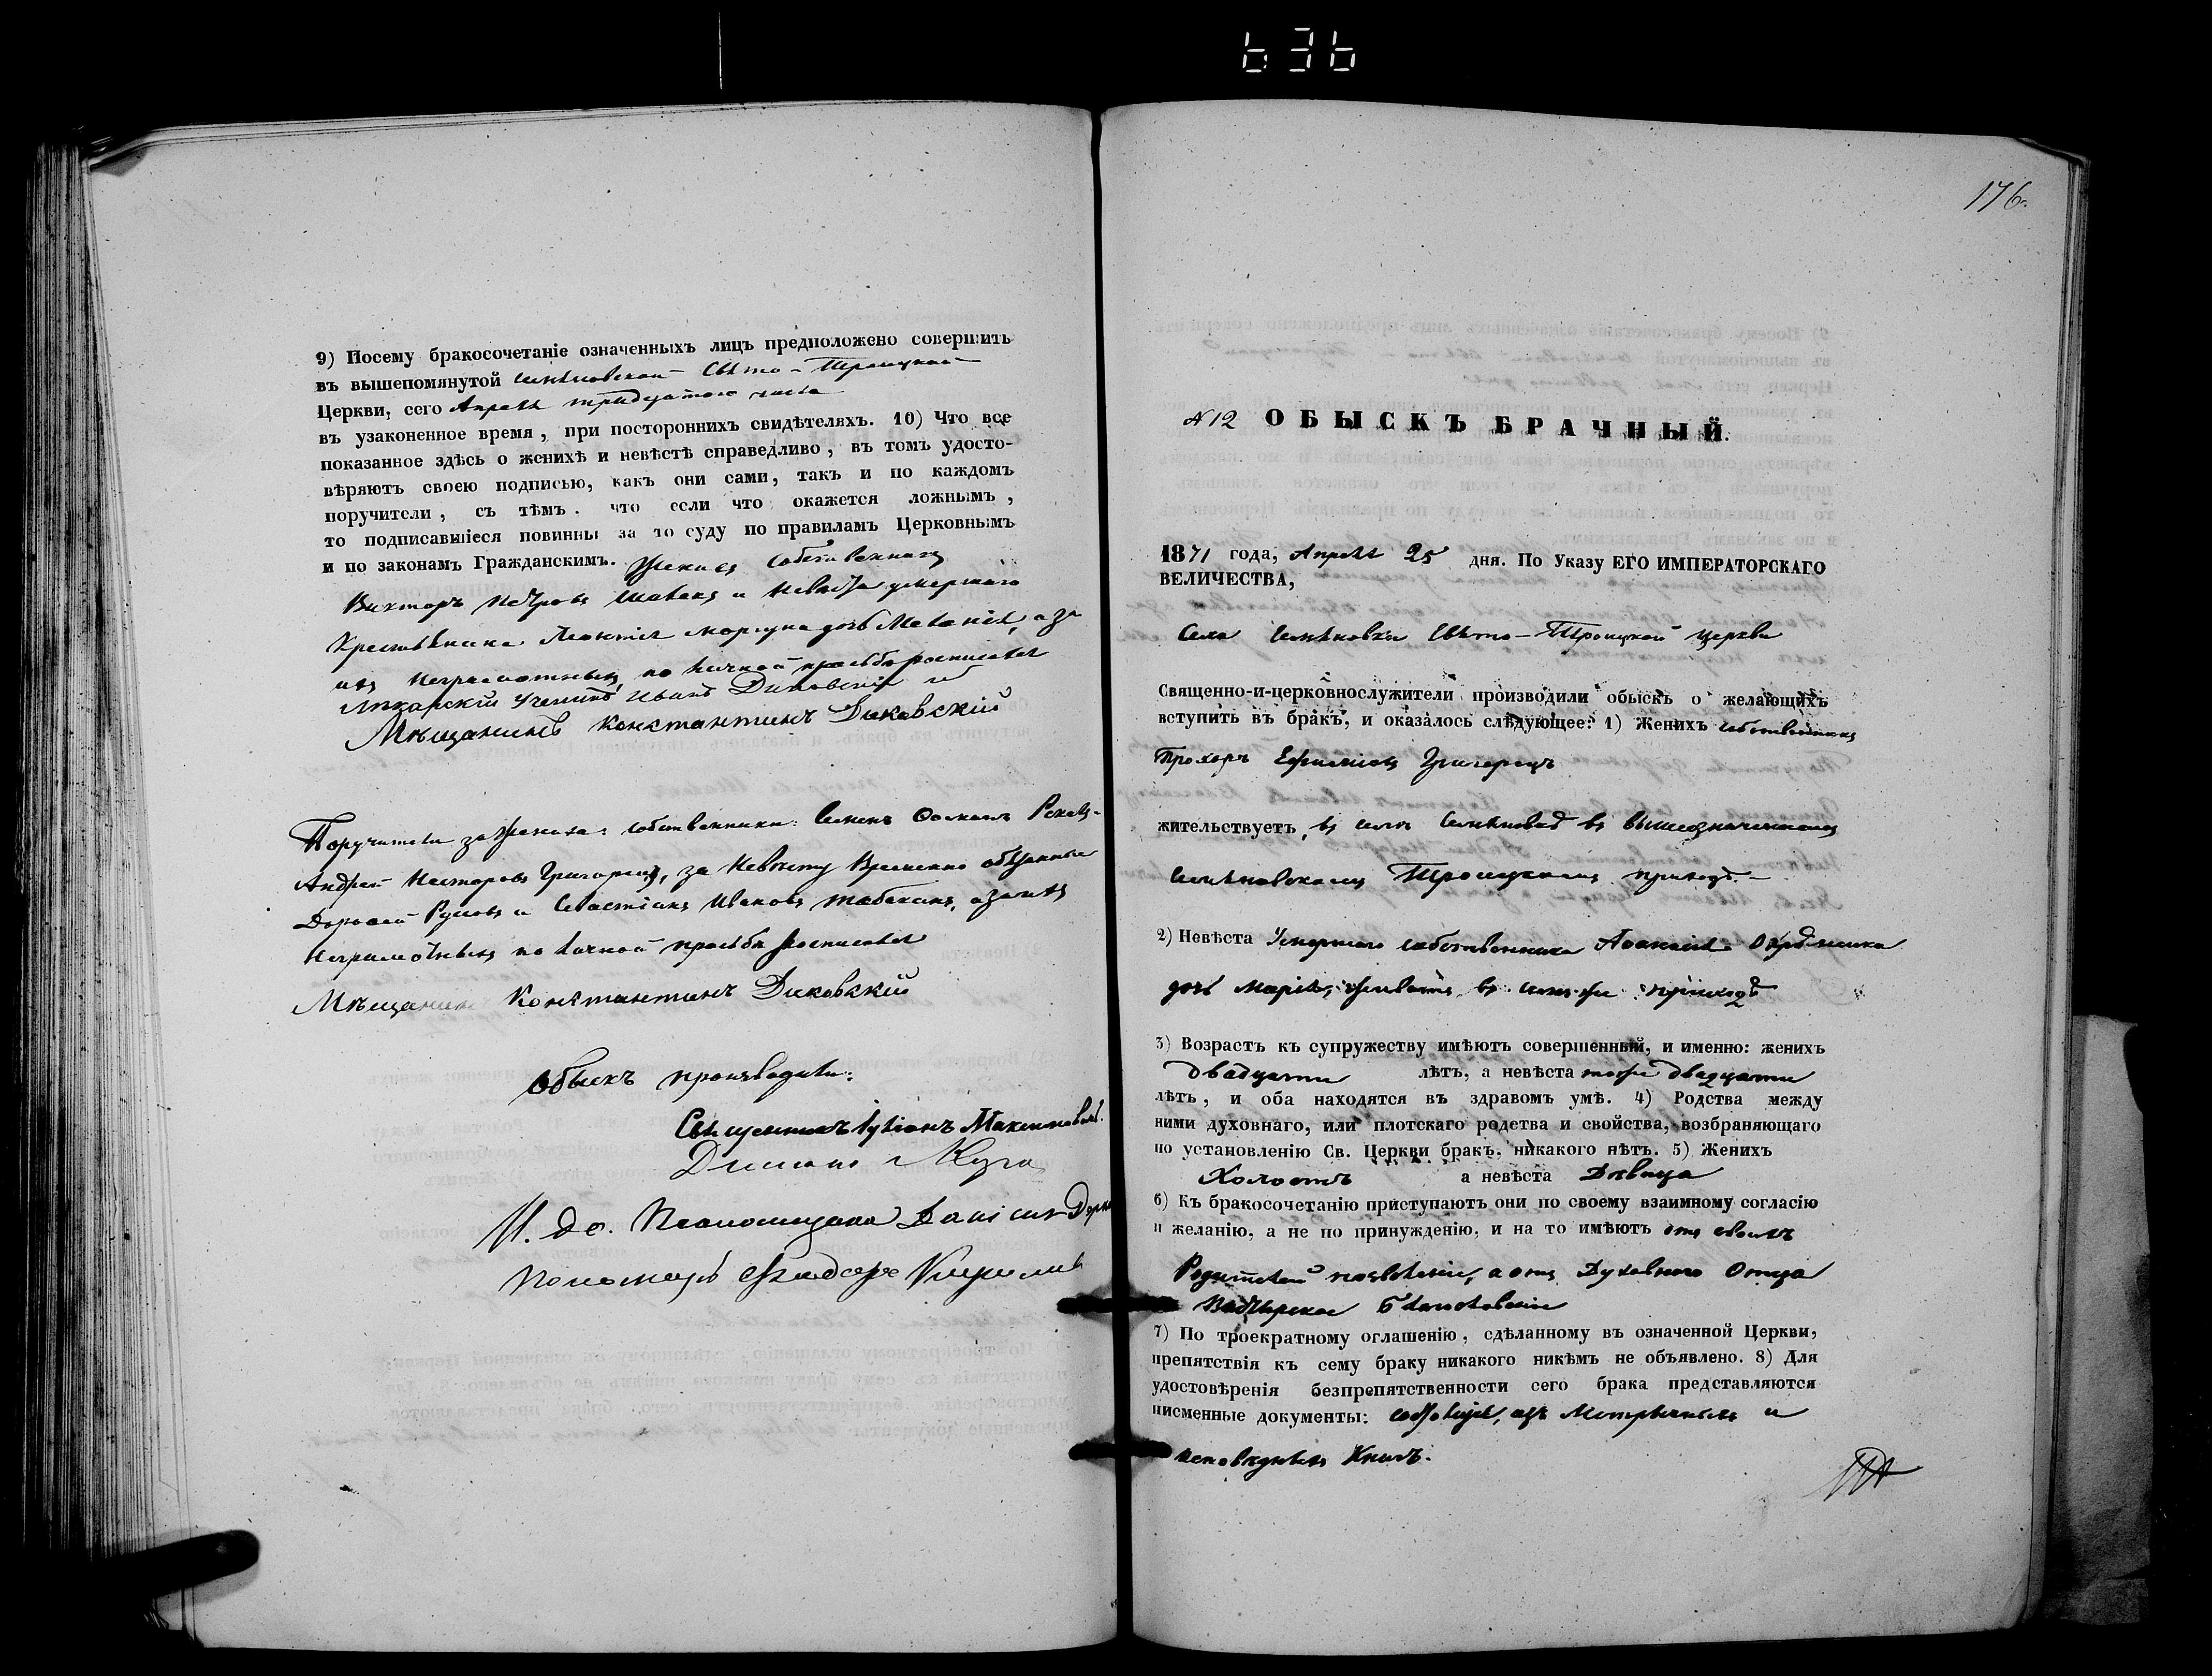 636
9) Посему бракосочетаніе означенныхъ лицъ предположено совершить
въ вышепомянутой Свято-Троицкой
Церкви, сего Апрѣля тридцатого числа
въ узаконенное время, при постороннихъ свидѣтеляхъ. 10) Что все
показанное здѣсь о женихѣ и невѣстѣ справедливо, въ томъ удосто-
вѣряютъ своею подписью, какъ они сами, такъ и по каждомъ
поручители, съ тѣмъ. что если что окажется ложнымъ,
то подписавшіеся повинны за то суду по правиламъ Церковнымъ
и по законамъ Гражданскимъ. Женихъ собственникъ
Викторъ Петровъ и невѣста умершаго
Крестьянина Леонтія дочь Меланія, а за
ихъ неграмотныхъ, по личной просьбѣ росписался
Лѣкарскій Ученикъ Иванъ Диковскій и
Мѣщанинъ Константинъ Диковскій
Поручители за жениха: собственники: Семенъ
Андрей Несторовъ Григорецъ, за Невѣсту Временно обязанные
и Севастіанъ Ивановъ а за ихъ
Неграмотныхъ по личной просьбѣ росписался
Мѣщанинъ Константинъ Диковскій
Обыскъ производили:
Священникъ Іуліанъ
И. до. Псаломщика Даніилъ
Пономарь
176.
N 12 ОБЫСКЪ БРАЧНЫЙ.
1871 года, Апрѣля 25 дня. По Указу ЕГО ИМПЕРАТОРСКАГО
ВЕЛИЧЕСТВА,
Села Свято-Троицкой церкви
Священно-и-церковнослужители производили обыскъ о желающихъ
вступить въ бракъ, и оказалось слѣдующее: 1) Женихъ собственникъ
Прохоръ Ефимовъ Григорецъ
жительствуетъ, въ селѣ въ вышеозначенномъ
Троицкомъ приходѣ.
2) Невѣста Умершаго собственника Аѳанасія
дочь Марія, въ семъ же приходѣ
3) Возрастъ къ супружеству имѣютъ совершенный, и именно: женихъ
двадцати лѣтъ, а невѣста тоже двадцати
лѣтъ, и оба находятся въ здравомъ умѣ. 4) Родства между
ними духовнаго, или плотскаго родства и свойства, возбраняющаго
по установленію Св. Церкви бракъ, никакого нѣтъ. 5) Женихъ
Холостъ а невѣста Дѣвица
6) Къ бракосочетанію приступаютъ они по своему взаимному согласію
и желанію, а не по принужденію, и на то имѣютъ отъ своихъ
Родителей позволеніе, а отъ Духовнаго Отца
Пастырское Благословеніе
7) По троекратному оглашенію, сдѣланному въ означенной Церкви,
препятствія къ сему браку никакого никѣмъ не объявлено. 8) Для
удостовѣренія безпрепятственности сего брака представляются
писменные документы: изъ Метрическихъ и
исповѣдныхъ Книгъ.